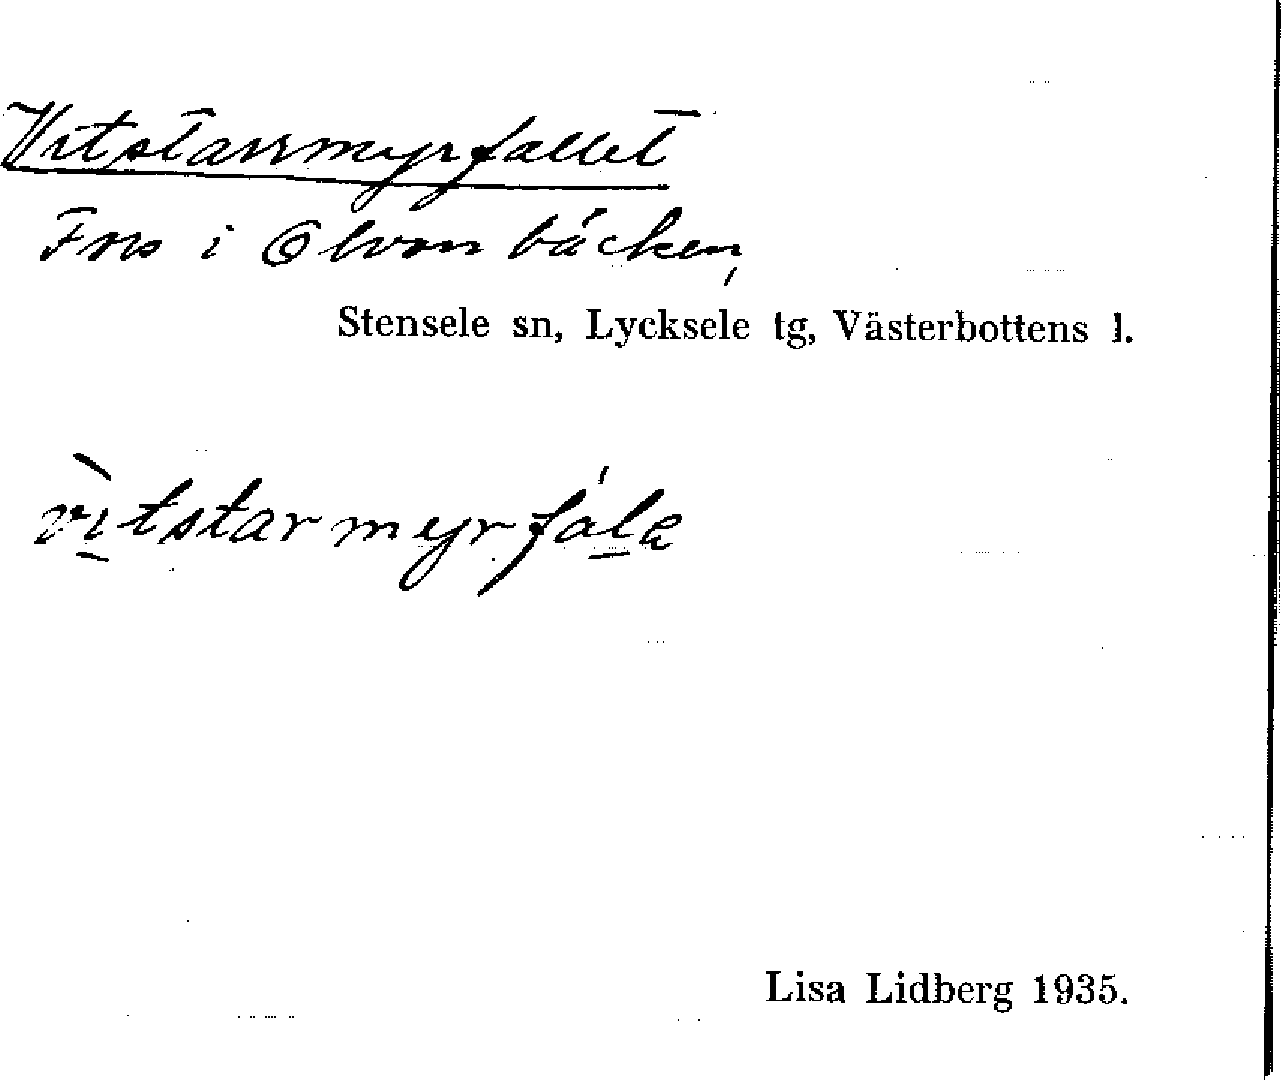 Vitstarrmyrfallet
Fors i Olvonbäcken,
Stensele sn, Lycksele tg, Västerbottens l.
vìtstarmyrfála
Lisa Lidberg 1935.